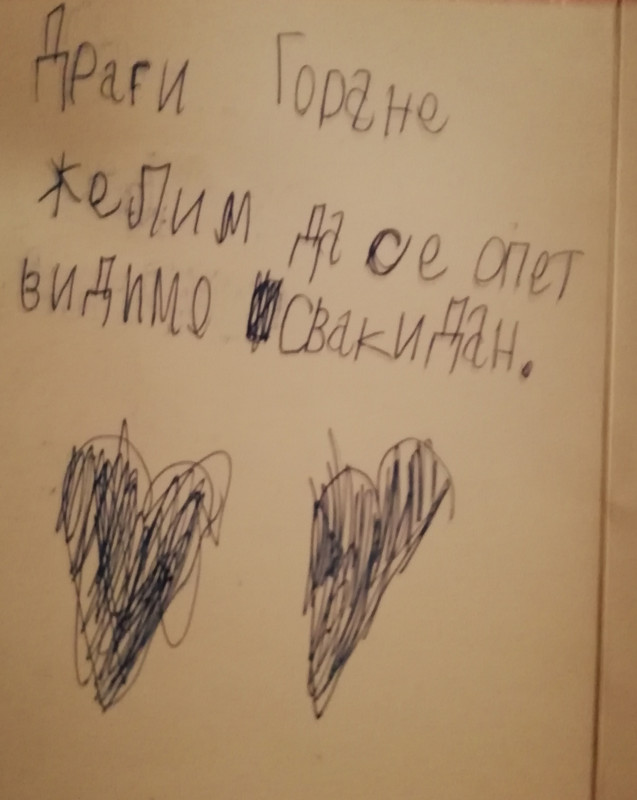 Драги Горане
желим да се опет
видимо свакидан.